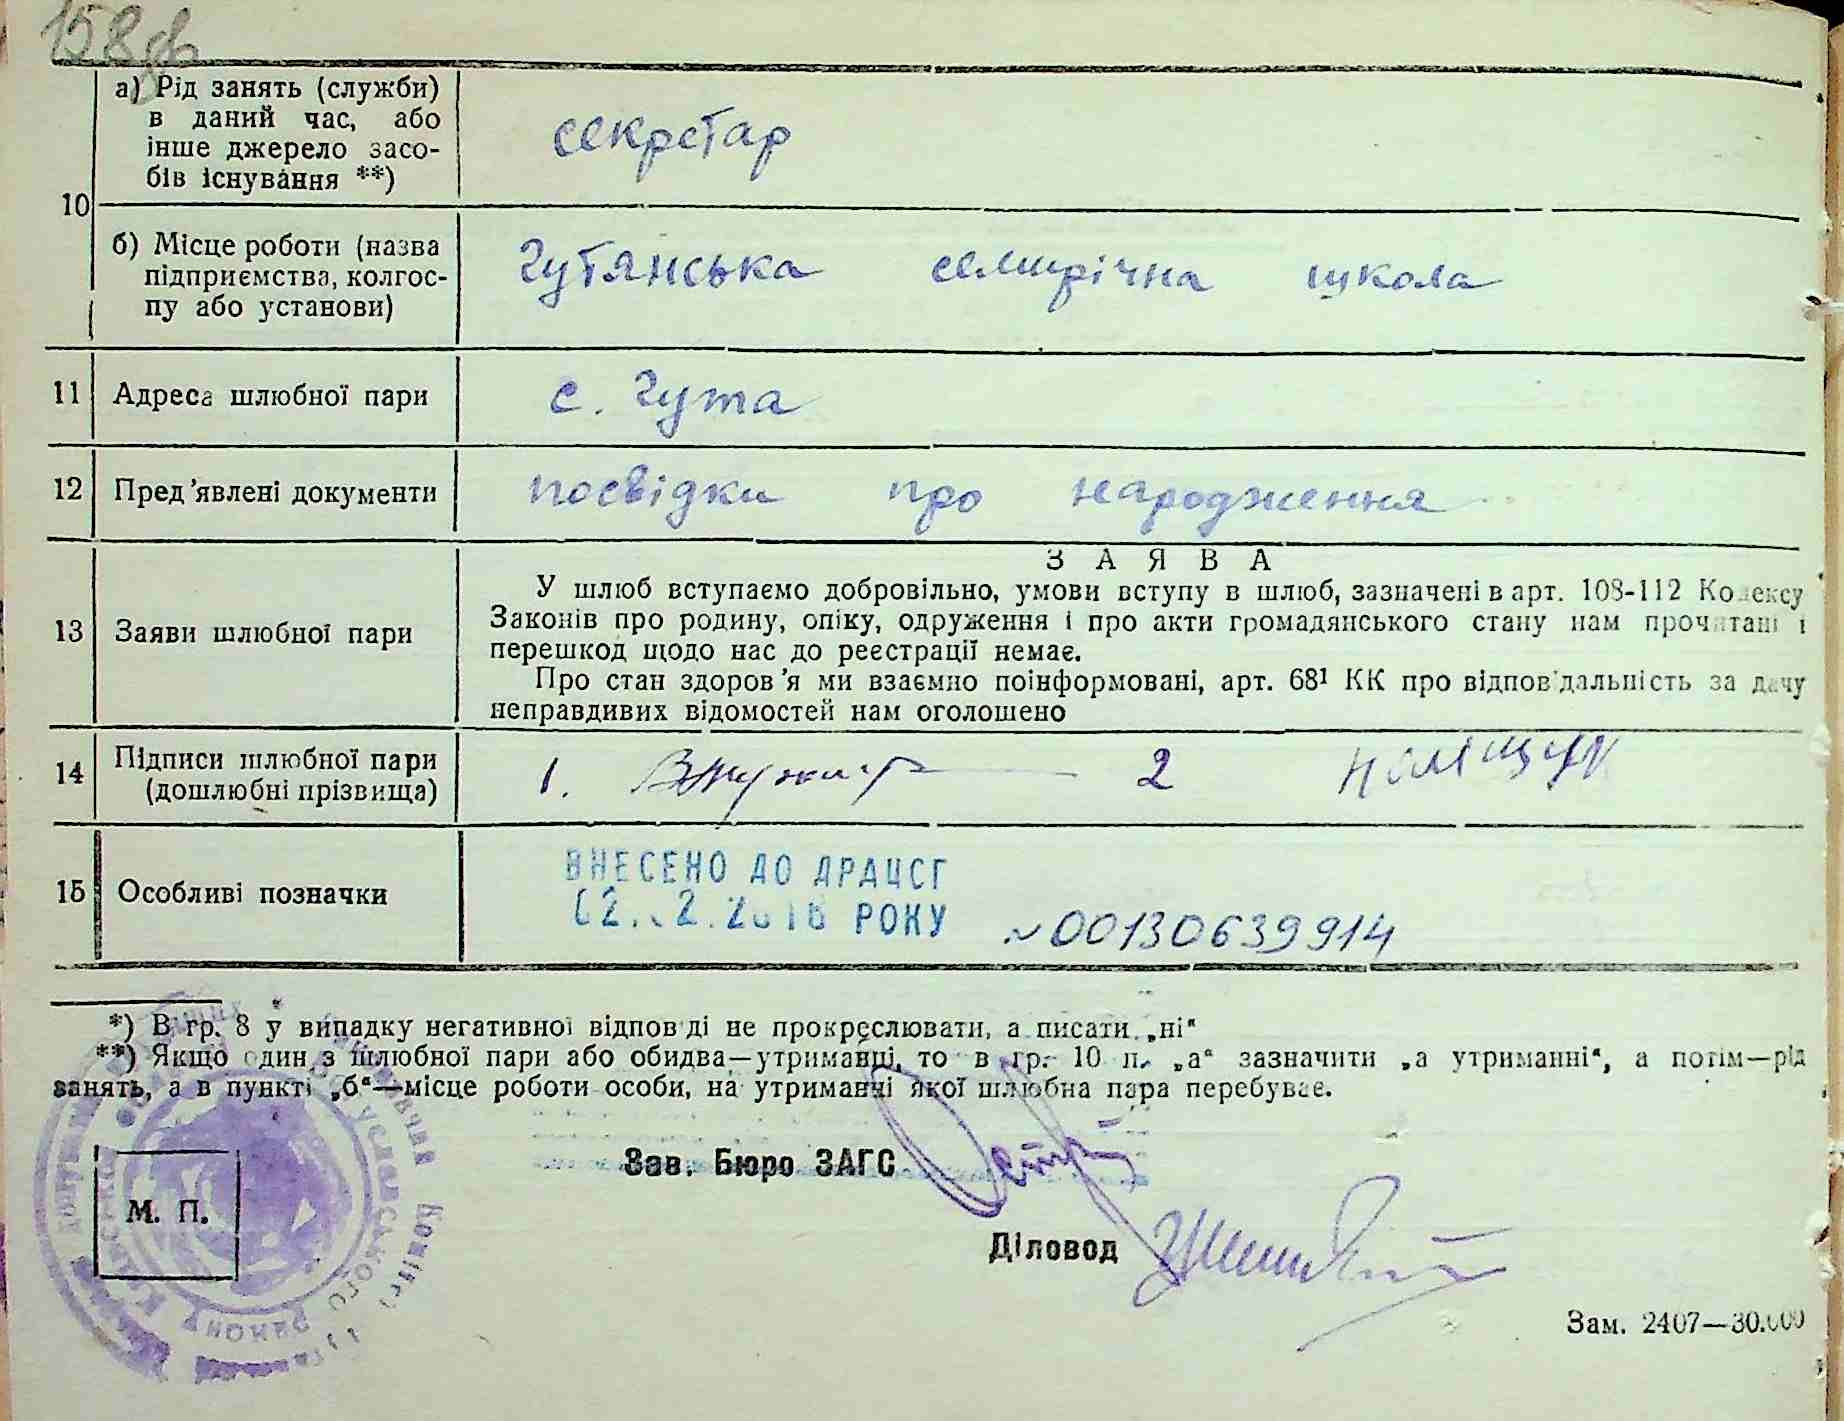 158 зв
10
а) Рід занять (служби)
в даний час, або
інше джерело засо-
бів існування **)
секретар
б) Місце роботи (назва
підприємства, колгос-
пу або установи)
Гутянська семирічна школа
11 Адреса шлюбної пари с. Гута
12 Пред'явлені документи посвідки про народження
13 Заяви шлюбної пари
ЗАЯВА
У шлюб вступаємо добровільно, умови вступу в шлюб, зазначені в арт. 108-112 Кодексу
Законів про родину, опіку, одруження і про акти громадянського стану нам прочитані і
перешкод щодо нас до реєстрації немає.
Про стан здоров'я ми взаємно поінформовані, арт. 68¹ КК про відповідальність за дачу
неправдивих відомостей нам оголошено
14 Підписи шлюбної пари
(дошлюбні прізвища)
1. 2
15 Особливі позначки
ВНЕСЕНО ДО ДРАЦСГ
РОКУ
№00130639914
*) В гр. 8 у випадку негативної відповіді не прокреслювати, а писати „ні"
**) Якщо один з шлюбної пари або обидва—утриманці, то в гр. 10 п. „а" зазначити „а утриманні", а потім—рід
занять, а в пункті „б"—місце роботи особи, на утриманні якої шлюбна пара перебуває.
Зав. Бюро ЗАГС
М. П.
Діловод
Зам. 2407—30.000